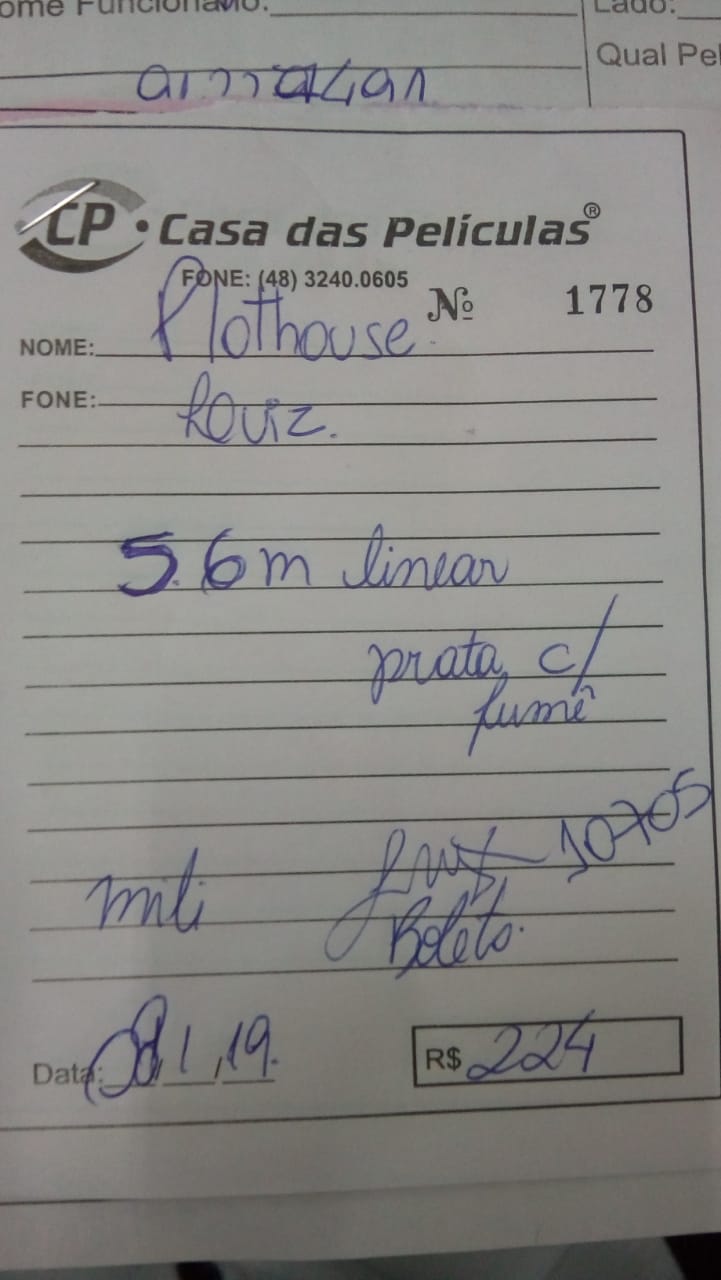 ome Funcionário:
Lado:
Qual Pel
CP • Casa das Películas®
FONE: (48) 3240.0605
Nº 1778
NOME: Plothouse
FONE: Louiz.
5.6m linear
prata c/
fumê
10705
mili
Boleto.
Data: 08, 1, 19.
R$ 224